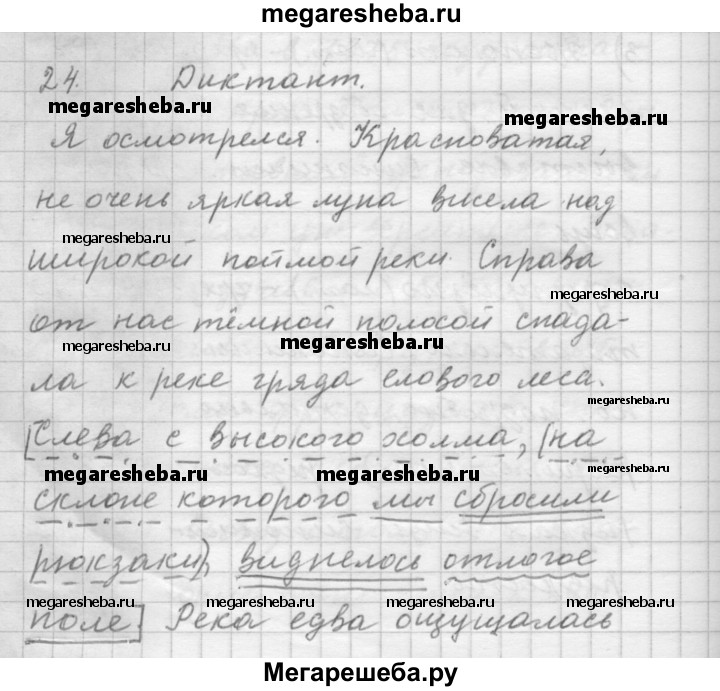 megaresheba.ru
24. Диктант.
megaresheba.ru
megaresheba.ru
Я осмотрелся. Красноватая,
не очень яркая луна висела над
megaresheba.ru
широкой поймой реки. Справа
megaresheba.ru
от нас тёмной полосой спада-
megaresheba.ru
megaresheba.ru
ла к реке гряда елового леса.
megaresheba.ru
[Слева с высокого холма, (на
megaresheba.ru
megaresheba.ru
megaresheba.ru
склоне которого мы сбросили
рюкзаки), виднелось отлогое
megaresheba.ru
megaresheba.ru
megaresheba.ru
megaresheba.ru
поле.] Река едва ощущалась
Мегарешеба.ру